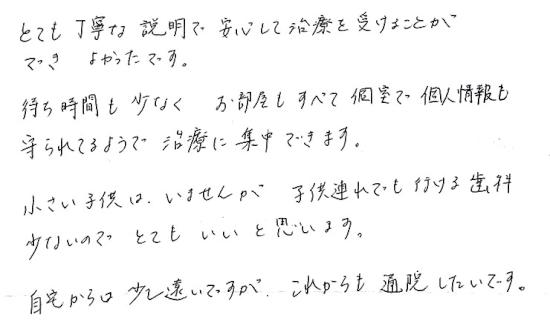 とても丁寧な説明で安心して治療を受けることが
でき よかったです。
待ち時間も少なく お部屋もすべて個室で個人情報も
守られてるようで治療に集中できます。
小さい子供は、いませんが 子供連れでも行ける歯科
少ないので とても いいと思います。
自宅からは少し遠いですが、これからも通院したいです。